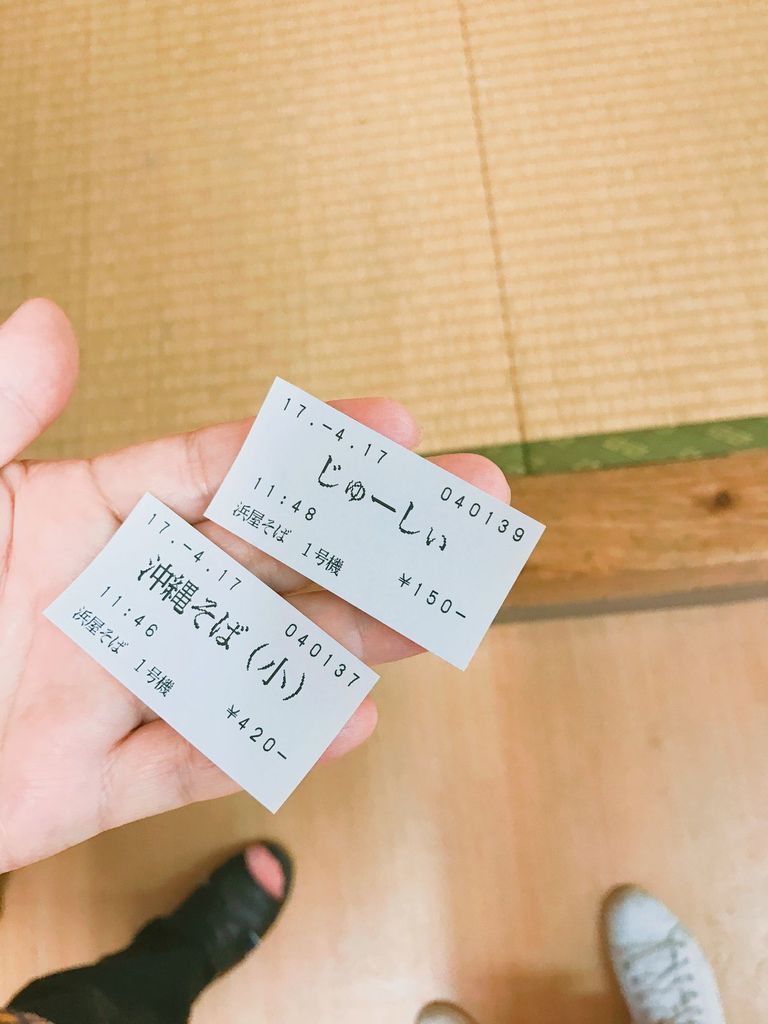 17.-4.17 040139
じゅーしぃ
11:48 ¥150-
浜屋そば 1号機
17.-4.17 040137
沖縄そば(小)
11:46 ¥420-
浜屋そば 1号機